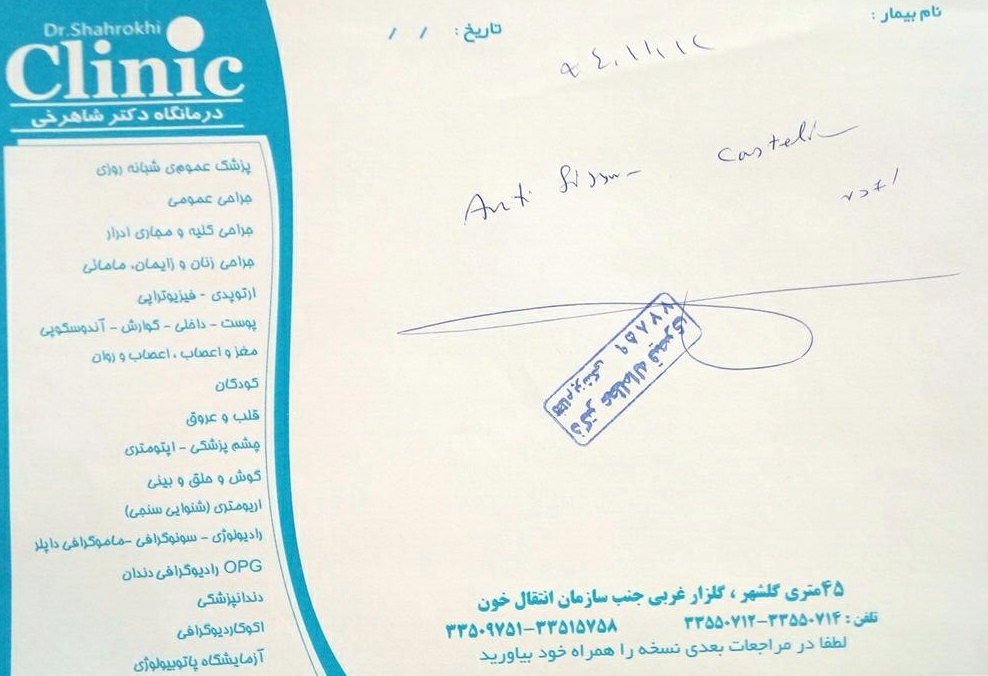 Dr.Shahrokhi
Clinic
درمانگاه دکتر شاهرخی
پزشک عمومی شبانه روزی
جراحی عمومی
جراحی کلیه و مجاری ادرار
جراحی زنان و زایمان، مامائی
ارتوپدی - فیزیوتراپی
پوست - داخلی - گوارش - آندوسکوپی
مغز و اعصاب ، اعصاب و روان
کودکان
قلب و عروق
چشم پزشکی - اپتومتری
گوش و حلق و بینی
اریومتری (شنوایی سنجی)
رادیولوژی - سونوگرافی -ماموگرافی داپلر
OPG رادیوگرافی دندان
دندانپزشکی
اکوکاردیوگرافی
آزمایشگاه پاتوبیولوژی
نام بیمار :
تاریخ : / /
Anti
دکتر
نظام پزشکی ۷۷۸۵۹
۴۵متری گلشهر ، گلزار غربی جنب سازمان انتقال خون
تلفن : ۳۳۵۵۰۷۱۴-۳۳۵۵۰۷۱۲ ۳۳۵۱۵۷۵۸-۳۳۵۰۹۷۵۱
لطفا در مراجعات بعدی نسخه را همراه خود بیاورید